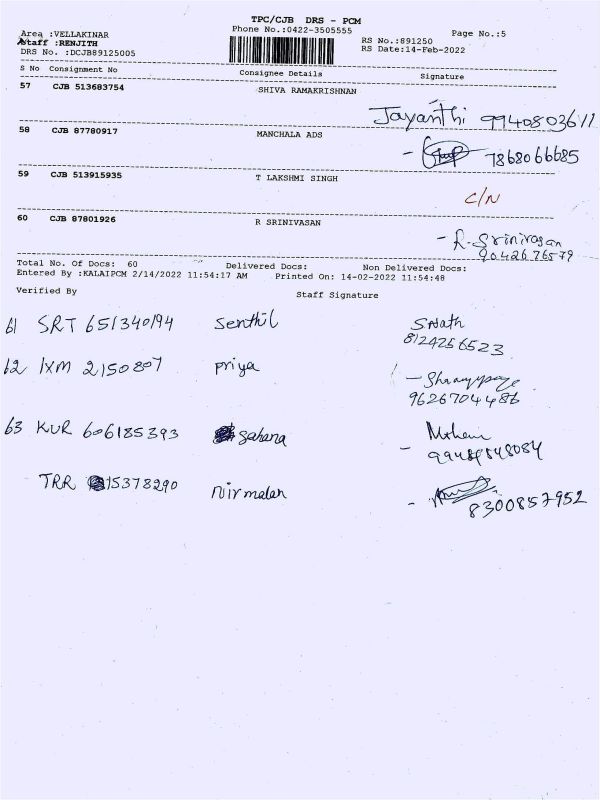 TPC/CJB DRS - PCM
Area :VELLAKINAR Phone No.:0422-3505555 Page No.:5
Staff :RENJITH RS No.:891250
DRS No. :DCJB89125005 RS Date:14-Feb-2022
S No Consignment No Consignee Details Signature
57 CJB 513683754 SHIVA RAMAKRISHNAN
Jayanthi 9940803611
58 CJB 87780917 MANCHALA ADS
7868066685
59 CJB 513915935 T LAKSHMI SINGH
C/N
60 CJB 87801926 R SRINIVASAN
- R. Srinivasan
9042676579
Total No. Of Docs: 60 Delivered Docs: Non Delivered Docs:
Entered By :KALAIPCM 2/14/2022 11:54:17 AM Printed On: 14-02-2022 11:54:48
Verified By Staff Signature
61 SRT 651340194 Senthil
8124256523
62 IXM 2150807 priya
9626704486
63 KUR 606185393 Sahana
TRR 15378290 Nirmalan
8300857952